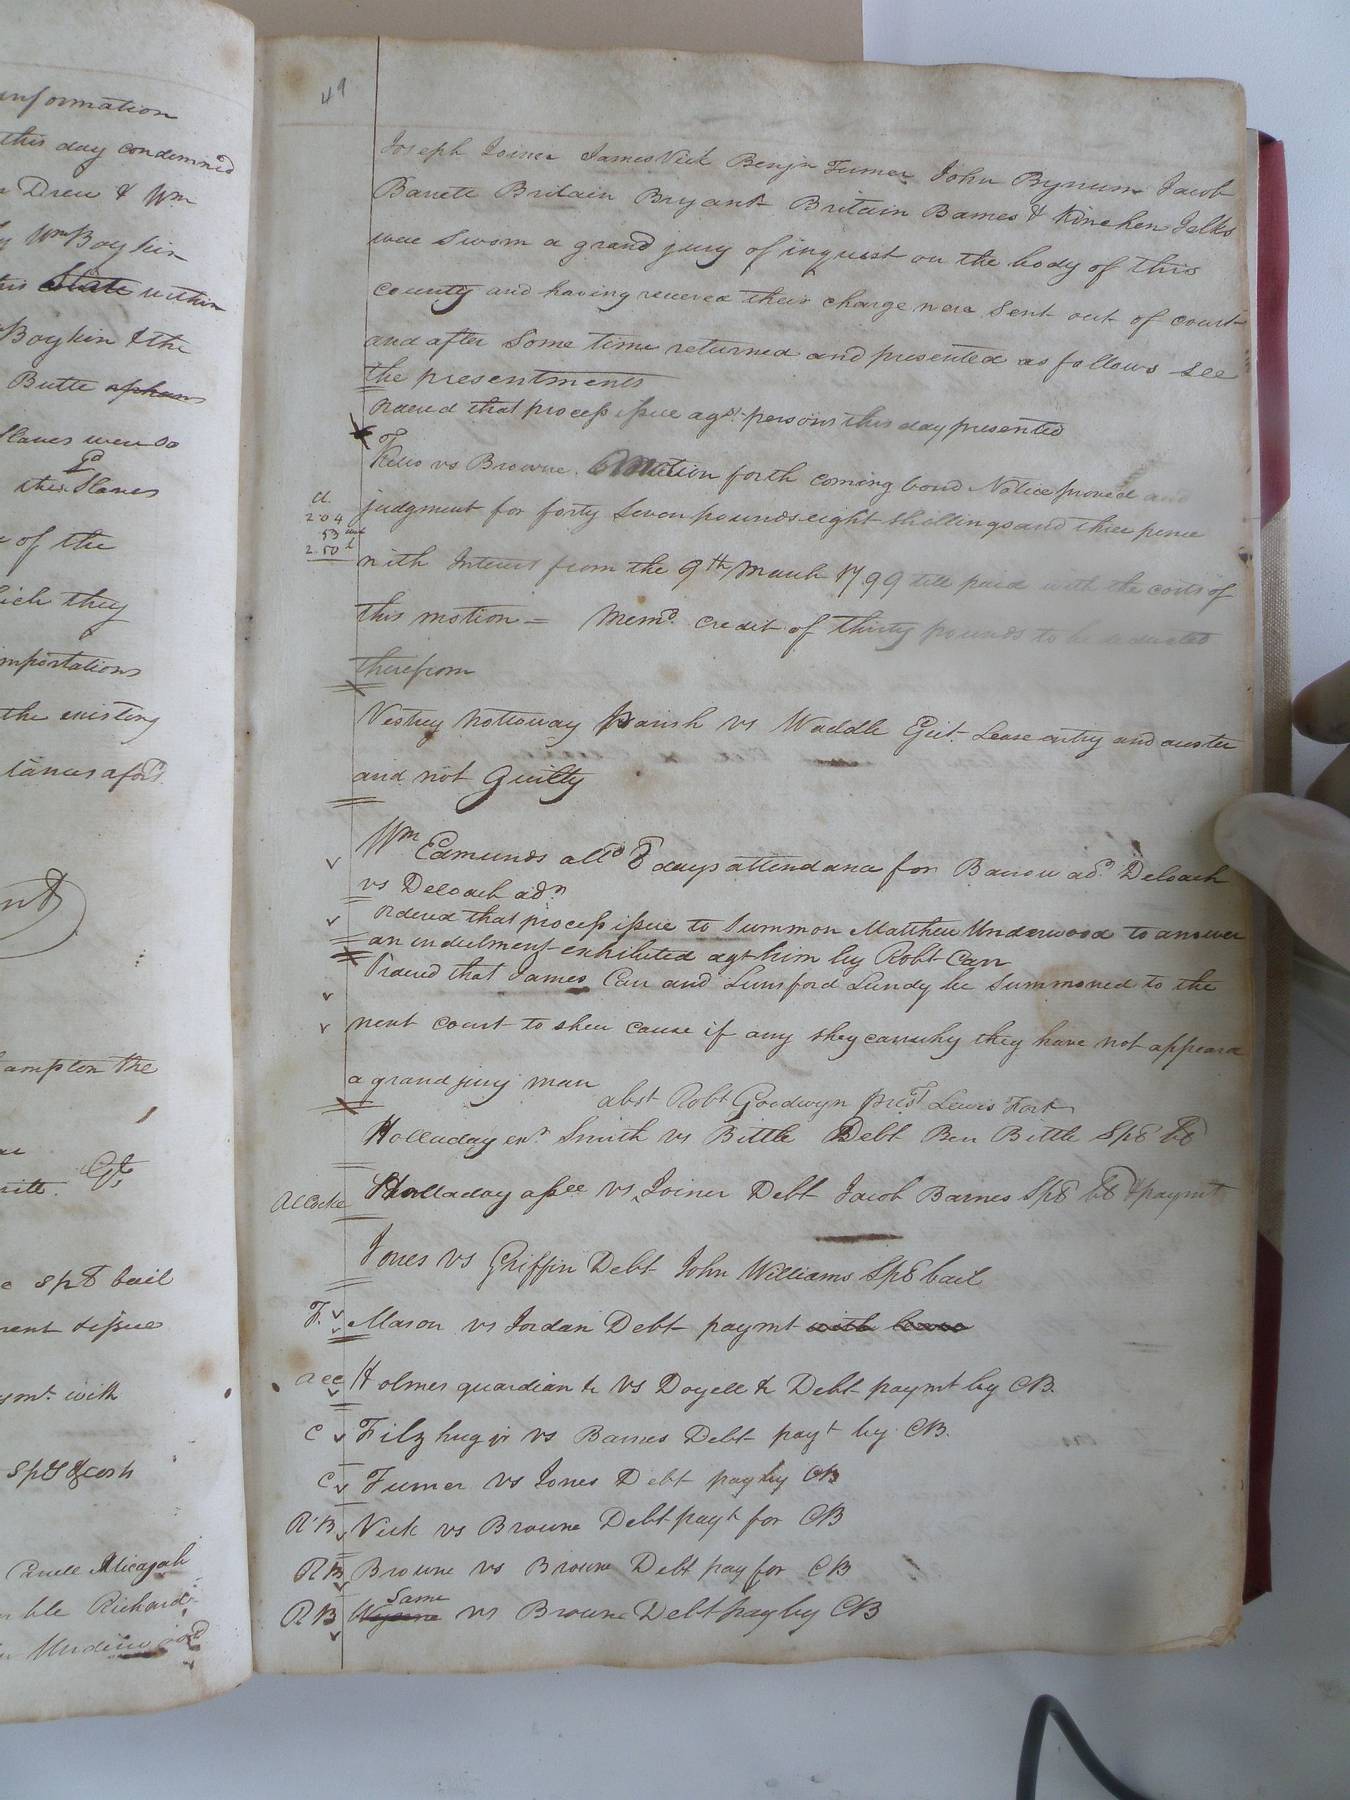 information
this day condemned
Drew & Wm
Wm Boykin
this State within
Boykin & the
Butte orphans
Slaves were so
Pd
their Slaves
of the
which they
importations
the existing
afsd
ampton the
Spl bail
ment & issue
paymt. with
Spl & cosh
Micajah
Richard
49
Joseph Joiner James Vick Benjn Turner John Bynum Jacob
Barrett Britain Bryant Britain Barnes & Kinchen Jelks
were Sworn a grand jury of inquest on the body of this
county and having received their charge were Sent out of court
and after Some time returned and presented as follows See
the presentments
Ordered that process issue agst. persons this day presented
F
Kello vs Browne. Motion forth coming bond Notice proved and
judgment for forty Seven pounds eight Shillings and three pence
cl.
2.04
53
2.50
with Interest from the 9th March 1799 till paid with the costs of
this motion = Memo. credit of thirty pounds to be deducted
therefrom
Vestry Nottoway Parish vs Waddle Ejct. Lease entry and ouster
and not Guilty
Wm Edmunds alld 8 days attendance for Barrow ado. Deloach
vs Deloach adn.
Ordered that process issue to Summon Matthew Underwood to answer
an indictment exhibited agt him by Robt Carr
Ordered that James Carr and Lunsford Lundy be Summoned to the
next court to shew cause if any they can why they have not appeard
a grand jury man
abst Robt Goodwyn prest Lewis Fort
Holladay exr. Smith vs Bittle Debt Ben Bittle Spl bl
A Cocke Holladay assee vs Joiner Debt Jacob Barnes Spl bl & paymt
Jones vs Griffin Debt John Williams Spl bail
F. Mason vs Jordan Debt paymt with leave
acc Holmes guardian &c vs Doyell &c Debt paymt by CB.
C Fitzhugh jr vs Barnes Debt payt by CB.
C Turner vs Jones Debt pay by CB
RB Vick vs Browne Debt payt for CB
RB Browne vs Browne Debt pay for CB
Same
RB Wyanne vs Browne Debt pay by CB